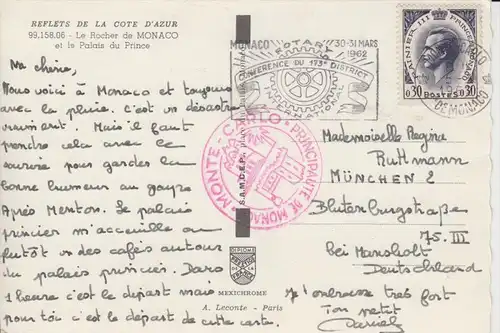 REFLETS DE LA COTE D'AZUR
99.158.06 - Le Rocher de MONACO
et le Palais du Prince
Ma chérie,
Nous voici à Monaco et toujours
avec la pluie. C'est un désastre
vraiment. Mais il faut
prendre cela avec le
sourire pour garder la
bonne humeur au groupe
Après Menton. Le palais
princier m'accueille ou
plutôt un des cafés autour
du palais princier. Dans
1 heure c'est le départ mais
pour toi c'est le départ de cette carte.
MONACO
ROTARY
30-31 MARS
1962
CONFERENCE DU 173e DISTRICT
INTERNATIONAL
RAINIER III PRINCE DE MONACO
0,30 POSTES 0,30
MONTE-CARLO
PTE DE MONACO
MONTE-CARLO · PRINCIPAUTE DE MONACO
S.A.M.D.E.P.
DIPLOME
MEXICHROME
A. Leconte - Paris
Mademoiselle Regina
Ruttmann
MÜNCHEN 2
Blutenburgstraße
75. III
bei
Deutschland
Je t'embrasse très fort
Ton petit
Daniel